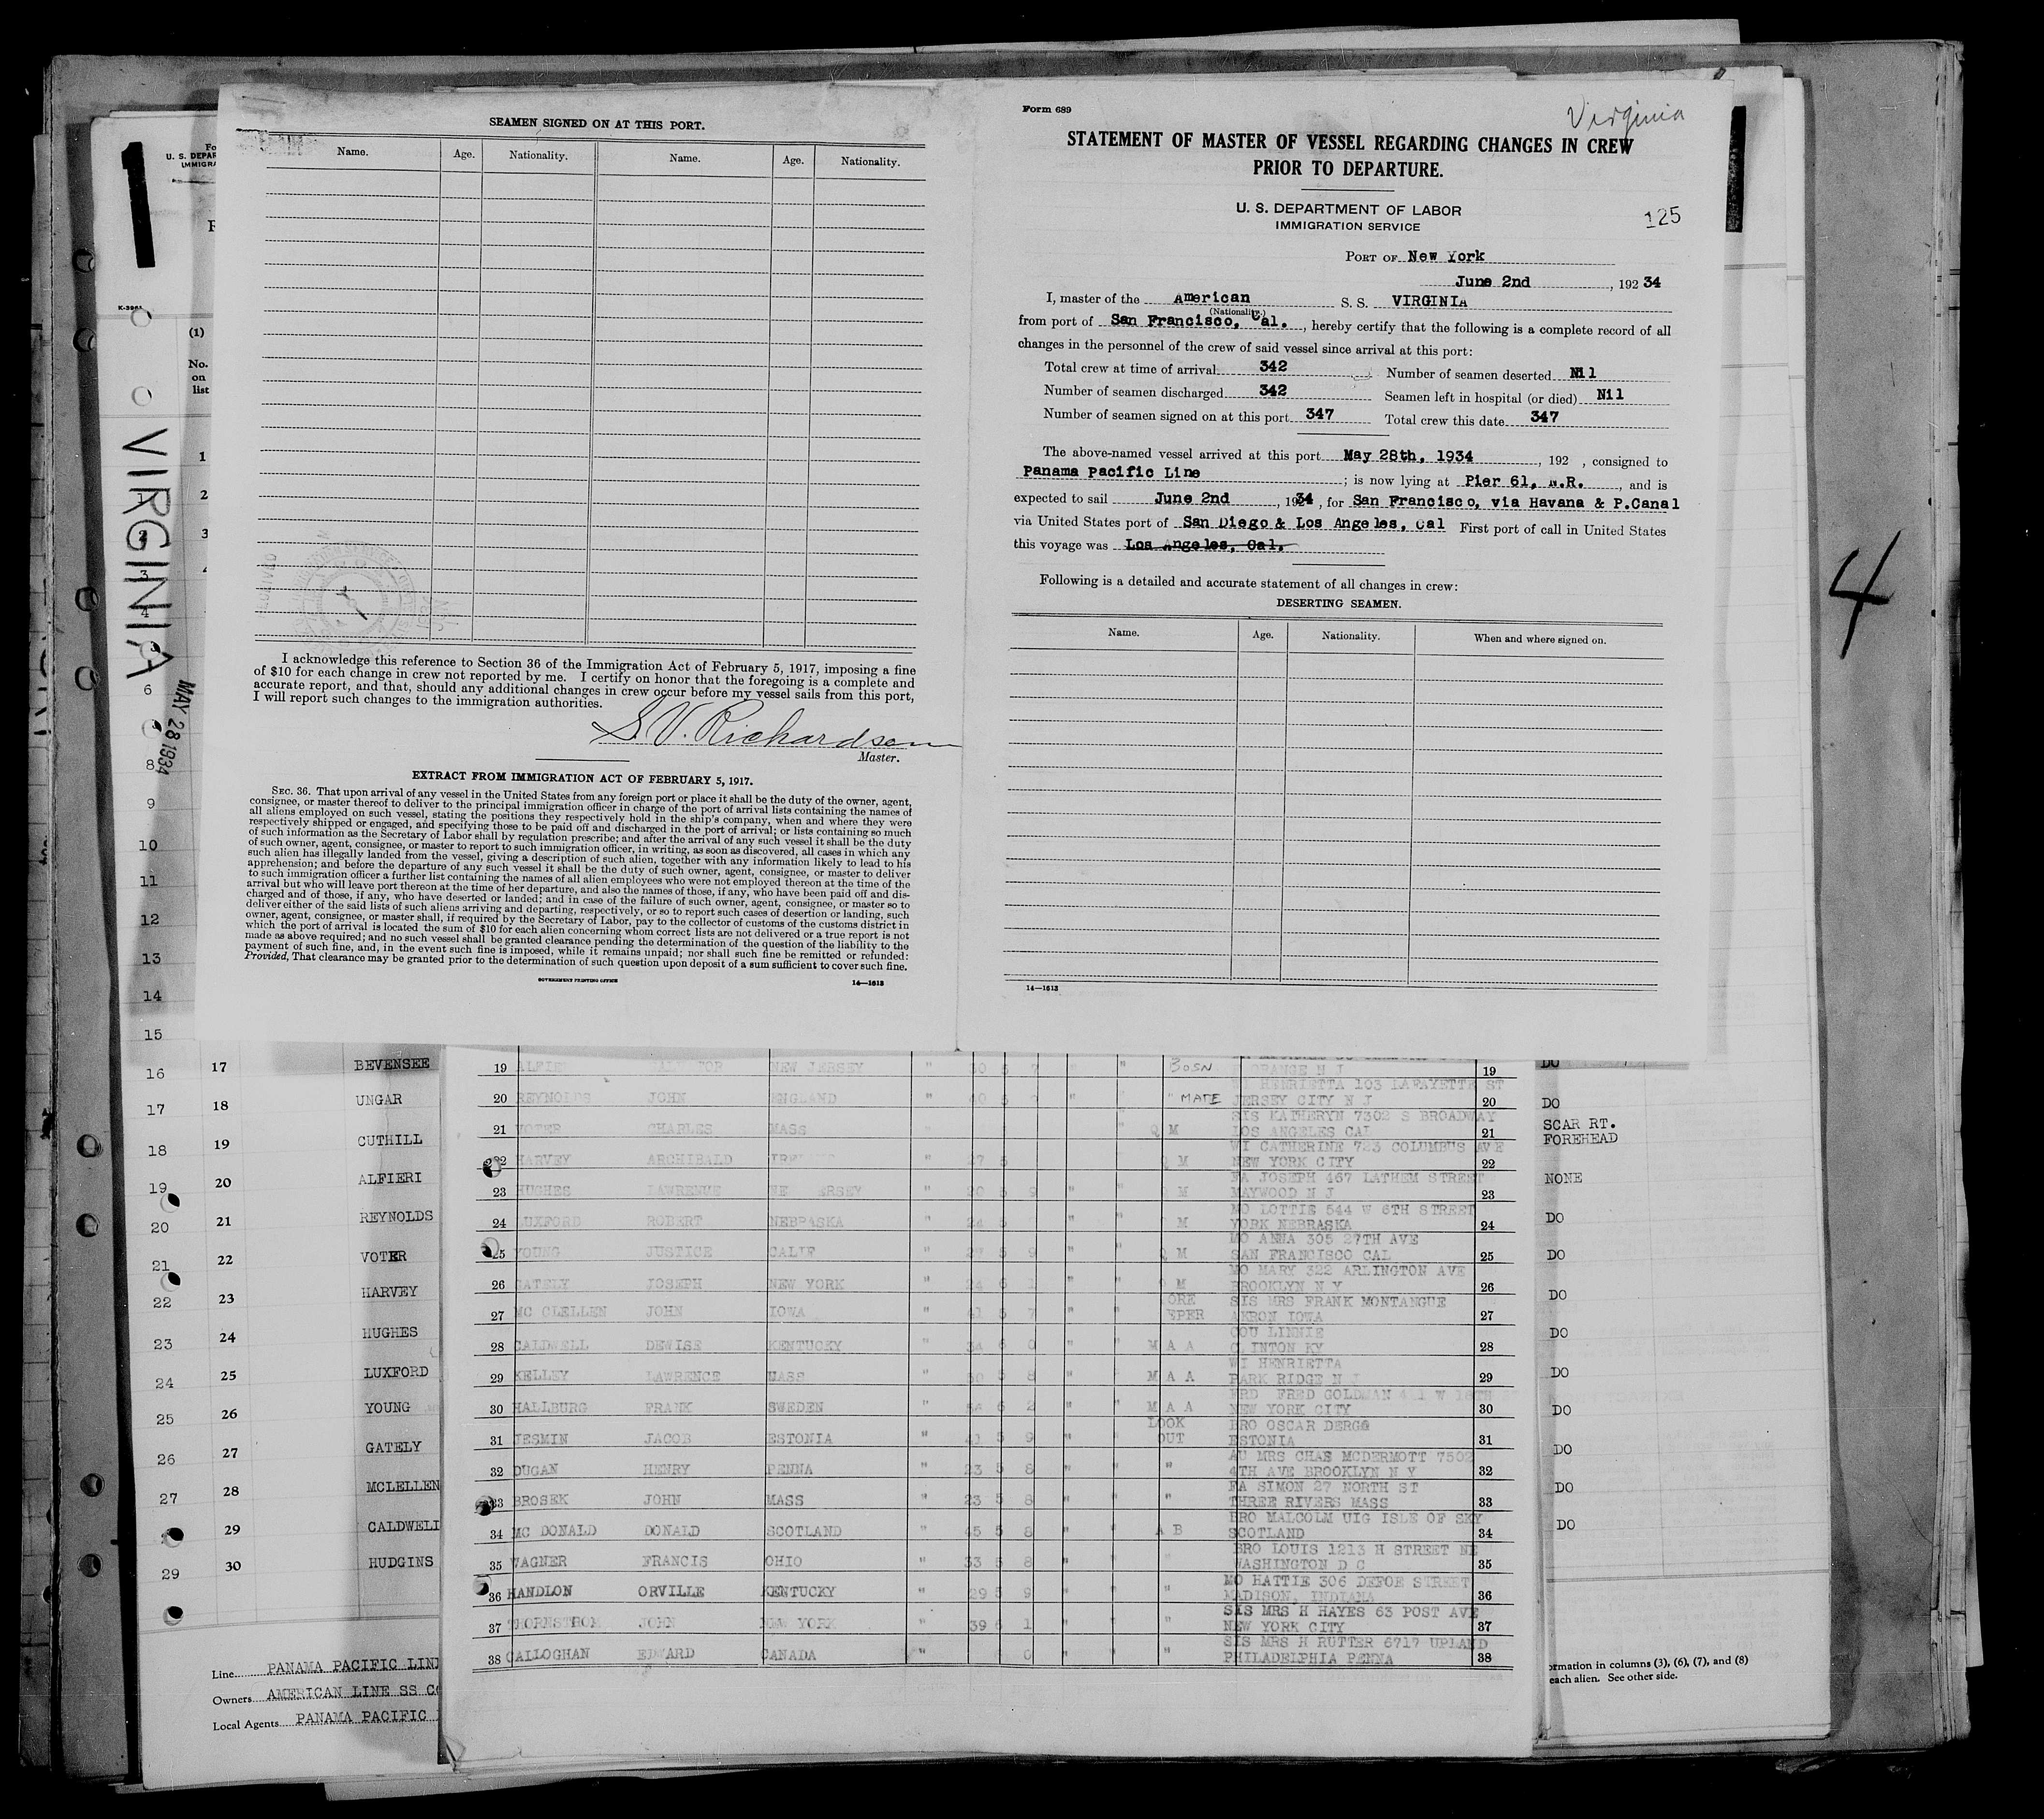 SEAMEN SIGNED ON AT THIS PORT.
Name. Age. Nationality. Name. Age. Nationality.
I acknowledge this reference to Section 36 of the Immigration Act of February 5, 1917, imposing a fine
of $10 for each change in crew not reported by me. I certify on honor that the foregoing is a complete and
accurate report, and that, should any additional changes in crew occur before my vessel sails from this port,
I will report such changes to the immigration authorities.
S. V. Richardson
Master.
EXTRACT FROM IMMIGRATION ACT OF FEBRUARY 5, 1917.
SEC. 36. That upon arrival of any vessel in the United States from any foreign port or place it shall be the duty of the owner, agent,
consignee, or master thereof to deliver to the principal immigration officer in charge of the port of arrival lists containing the names of
all aliens employed on such vessel, stating the positions they respectively hold in the ship's company, when and where they were
respectively shipped or engaged, and specifying those to be paid off and discharged in the port of arrival; or lists containing so much
of such information as the Secretary of Labor shall by regulation prescribe; and after the arrival of any such vessel it shall be the duty
of such owner, agent, consignee, or master to report to such immigration officer, in writing, as soon as discovered, all cases in which any
such alien has illegally landed from the vessel, giving a description of such alien, together with any information likely to lead to his
apprehension; and before the departure of any such vessel it shall be the duty of such owner, agent, consignee, or master to deliver
to such immigration officer a further list containing the names of all alien employees who were not employed thereon at the time of the
arrival but who will leave port thereon at the time of her departure, and also the names of those, if any, who have been paid off and dis-
charged and of those, if any, who have deserted or landed; and in case of the failure of such owner, agent, consignee, or master so to
deliver either of the said lists of such aliens arriving and departing, respectively, or so to report such cases of desertion or landing, such
owner, agent, consignee, or master shall, if required by the Secretary of Labor, pay to the collector of customs of the customs district in
which the port of arrival is located the sum of $10 for each alien concerning whom correct lists are not delivered or a true report is not
made as above required; and no such vessel shall be granted clearance pending the determination of the question of the liability to the
payment of such fine, and, in the event such fine is imposed, while it remains unpaid; nor shall such fine be remitted or refunded:
Provided, That clearance may be granted prior to the determination of such question upon deposit of a sum sufficient to cover such fine.
GOVERNMENT PRINTING OFFICE 14—1613
Form 689
Virginia
STATEMENT OF MASTER OF VESSEL REGARDING CHANGES IN CREW
PRIOR TO DEPARTURE.
U. S. DEPARTMENT OF LABOR
IMMIGRATION SERVICE
125
PORT OF New York
June 2nd, 192 34
I, master of the American S. S. VIRGINIA
(Nationality.)
from port of San Francisco, Cal., hereby certify that the following is a complete record of all
changes in the personnel of the crew of said vessel since arrival at this port:
Total crew at time of arrival 342 Number of seamen deserted Nil
Number of seamen discharged 342 Seamen left in hospital (or died) Nil
Number of seamen signed on at this port 347 Total crew this date 347
The above-named vessel arrived at this port May 28th, 1934, 192 , consigned to
Panama Pacific Line; is now lying at Pier 61, N.R., and is
expected to sail June 2nd, 1934, for San Francisco, via Havana & P.Canal
via United States port of San Diego & Los Angeles, Cal First port of call in United States
this voyage was Los Angeles, Cal.
Following is a detailed and accurate statement of all changes in crew:
DESERTING SEAMEN.
Name. Age. Nationality. When and where signed on.
14—1613
4
1
VIRGINIA
MAY 28 1934
U. S. DEPAR
IMMIGRA
(1)
No.
on
list
1
2
3
1
2
3
4
6
8
9
10
11
12
13
14
15
16 17 BEVENSEE
17 18 UNGAR
18 19 CUTHILL
19 20 ALFIERI
20 21 REYNOLDS
21 22 VOTER
22 23 HARVEY
23 24 HUGHES
24 25 LUXFORD
25 26 YOUNG
26 27 GATELY
27 28 MCLELLEN
28 29 CALDWELL
29 30 HUDGINS
Line PANAMA PACIFIC LIN
Owners AMERICAN LINE SS CO
Local Agents PANAMA PACIFIC
19 NEW JERSEY " BOSN ORANGE N J 19
WI HENRIETTA 103 LAFAYETTE ST
20 REYNOLDS JOHN ENGLAND " " MATE JERSEY CITY N J 20
SIS KATHERYN 7302 S BROADWAY
21 VOTER CHARLES MASS " Q M LOS ANGELES CAL 21
WI CATHERINE 723 COLUMBUS AVE
22 HARVEY ARCHIBALD " Q M NEW YORK CITY 22
FA JOSEPH 467 LATHEM STREET
23 HUGHES LAWRENCE " M MAYWOOD N J 23
MO LOTTIE 544 W 6TH STREET
24 LUXFORD ROBERT NEBRASKA " M YORK NEBRASKA 24
MO ANNA 305 27TH AVE
25 YOUNG JUSTICE CALIF " 27 5 9 " Q M SAN FRANCISCO CAL 25
MO MARY 322 ARLINGTON AVE
26 GATELY JOSEPH NEW YORK " 24 6 1 " " M BROOKLYN N Y 26
ORE SIS MRS FRANK MONTANGUE
27 MC CLELLEN JOHN IOWA " 41 5 7 " EPER AKRON IOWA 27
COU LINNIE
28 CALDWELL DEWISE KENTUCKY " 34 6 0 " " M A A C INTON KY 28
WI HENRIETTA
29 KELLEY LAWRENCE MASS " 5 8 " M A A PARK RIDGE N J 29
FRD FRED GOLDMAN W
30 HALLBURG FRANK SWEDEN " 6 2 M A A NEW YORK CITY 30
LOOK BRO OSCAR DERGG
31 JESMIN JACOB ESTONIA " 41 5 9 " OUT ESTONIA 31
AU MRS CHAS MCDERMOTT 7502
32 DUGAN HENRY PENNA " 23 5 8 " " " 4TH AVE BROOKLYN N Y 32
FA SIMON 27 NORTH ST
33 BROSEK JOHN MASS " 23 5 8 " " " THREE RIVERS MASS 33
BRO MALCOLM UIG ISLE OF SKY
34 MC DONALD DONALD SCOTLAND " 45 5 8 " " A B SCOTLAND 34
BRO LOUIS 1213 H STREET NE
35 WAGNER FRANCIS OHIO " 33 5 8 " " WASHINGTON D C 35
MO HATTIE 306 DEFOE STREET
36 HANDLON ORVILLE KENTUCKY " 29 5 9 " " MADISON, INDIANA 36
SIS MRS H HAYES 63 POST AVE
37 THORNSTROM JOHN NEW YORK " 39 6 1 " " " NEW YORK CITY 37
SIS MRS H RUTTER 6717 UPLAND
38 CALLOGHAN EDWARD CANADA " " " " PHILADELPHIA PENNA 38
DO
DO
SCAR RT.
FOREHEAD
NONE
DO
DO
DO
DO
DO
DO
DO
DO
DO
ormation in columns (3), (6), (7), and (8)
each alien. See other side.